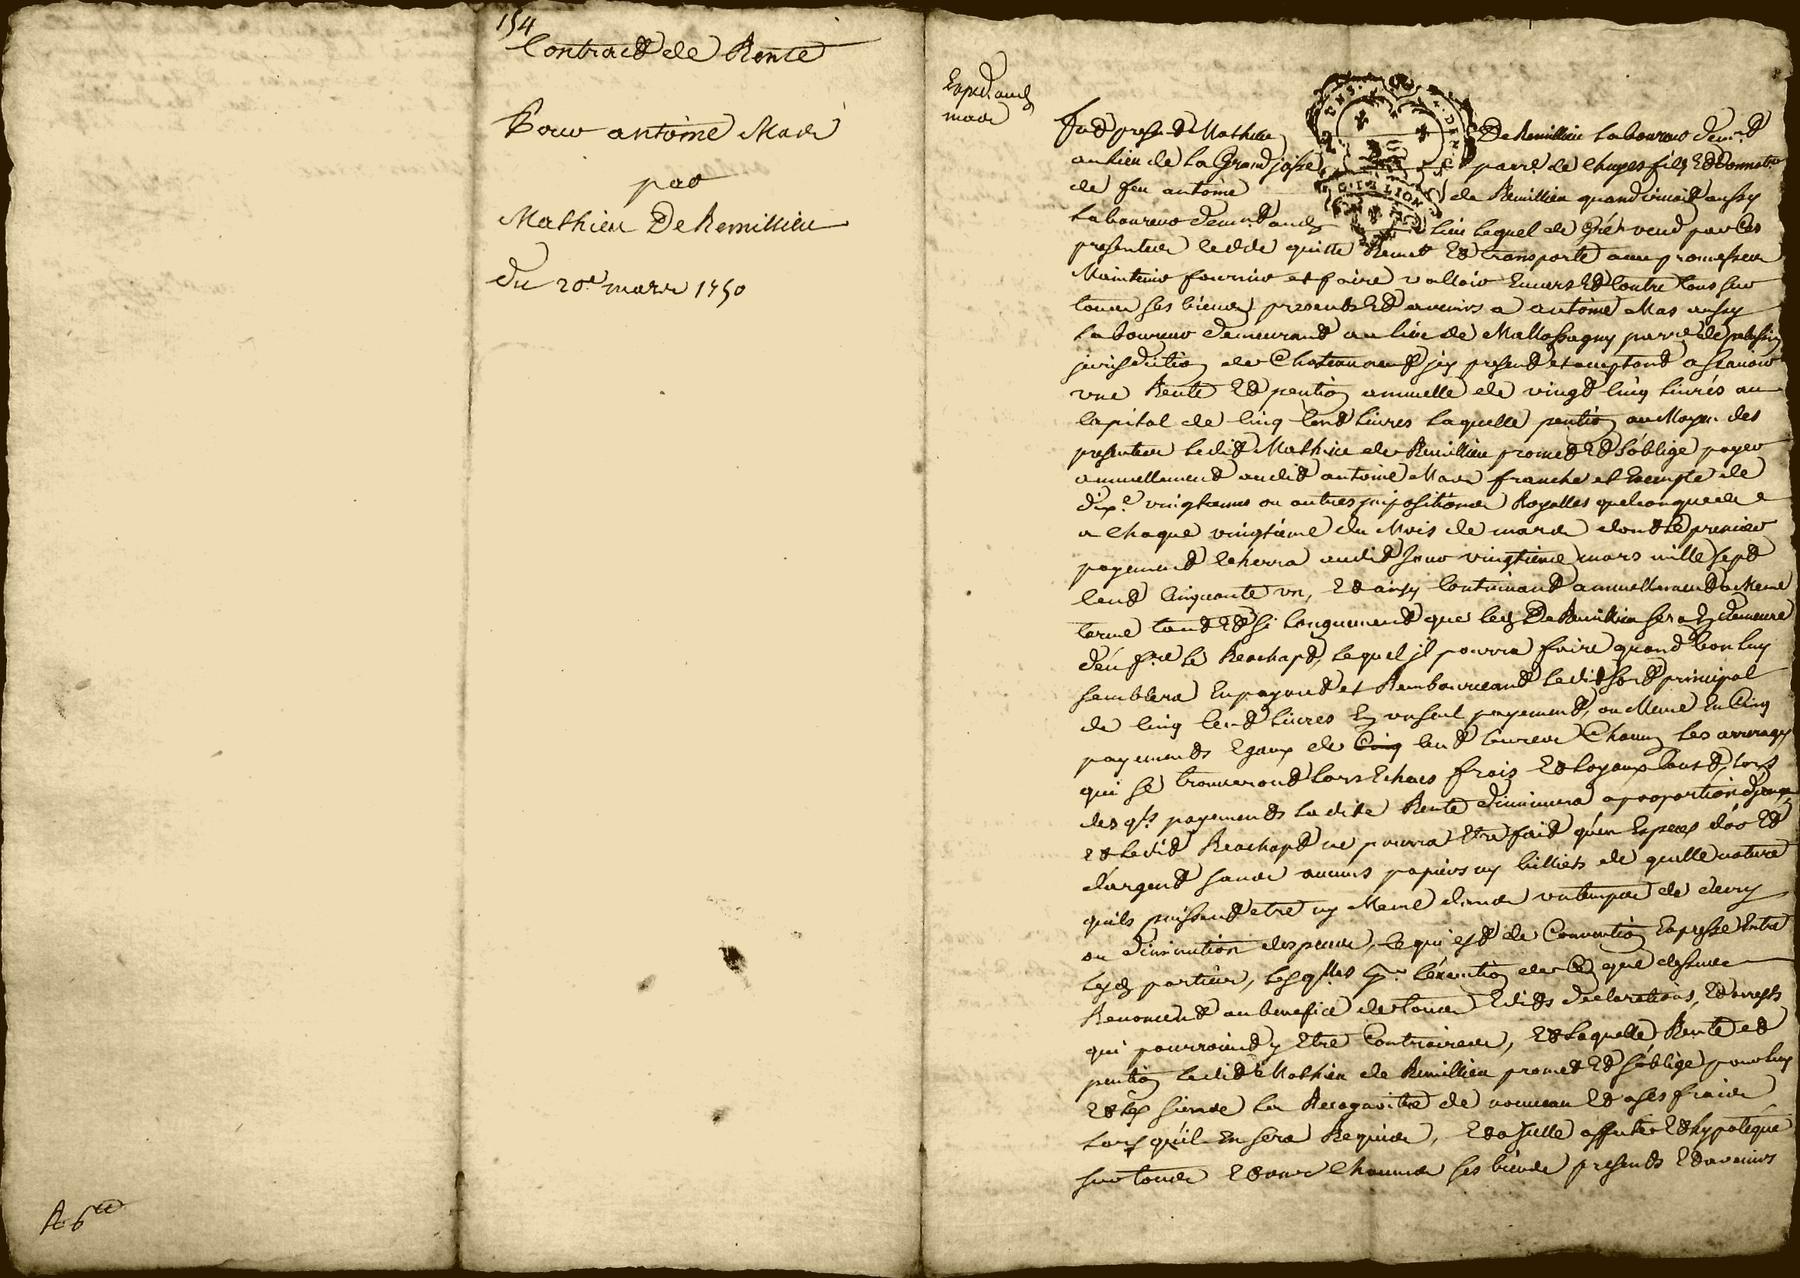 154
Contract de Rente
Pour antoine Mas
par
Mathieu De Remillieu
du 20e mars 1750
R 6tt
Exped. aud.
mas
Fut present Mathieu De Remillieu Laboureur demt
au lieu de La Grand josse parr. de Chuyes fils Et Donnatre
de feu antoine de Remillieu quand vivoit aussy
Laboureur demt aud. Lieu Lequel de Gré vend par Ces
presentes cedde quitte Remet Et transporte avec promesse de
Maintenir fournir et faire valloir Envers Et Contre tous sur
tous ses biens presents Et avenirs a antoine Mas aussy
Laboureur demeurant au lieu de Mallossagny parr. de pelussin
jurisdiction de Chateauneuf jcy present et acceptant a scavoir
une Rente Et pention annuelle de vingt Cinq Livres au
Capital de Cinq Cent Livres Laquelle pention au Moyen des
presentes Ledit Mathieu de Remillieu promet Et s'oblige payer
annuellement audit antoine Mas franche et Exempte de
dixe vingtiemes ou autres jmpositions Royalles quelconques
a Chaque vingtième du Mois de mars dont Le premier
payement Echerra audit jour vingtieme mars mille sept
Cent Cinquante un, Et ainsy Continuant annuellement a Meme
terme tant Et Si Longuement que led. De Remillieu sera En demeure
d'en fre Le Reachapt, Lequel jl pourra faire quand bon Luy
semblera En payant et Remboursant Ledit sort principal
de Cinq Cent Livres En un seul payement, ou Meme En Cinq
payements Egaux de Cent Livres Chacun Les arrerages
qui se trouveront Lors Echus frais Et Loyaux Couts, Lors
des qls payements La dite Rente diminuera a proportion
Et Ledit Reachapt ne pourra Etre fait qu'en Especes d'or Et
d'argent sans aucuns papiers ny billiets de quelle nature
quils puissent etre ny Meme dans un temps de decry
ou diminution d'especes, Ce qui est de Convention Expresse Entre
Lesd. parties, Lesqlles pr L'exécution de Ce que dessus
Renoncent au benefice de tous Edits declarations, Et arrests
qui pourroient y Etre Contraires, Et Laquelle Rente et
pention Ledit Mathieu de Remillieu promet Et s'oblige pour Luy
Et Les siens La Recognoitre de nouveau Et a ses frais
Lors qu'il En sera Requis, Et a jcelle affecter Et hypotéquer
sur tous Et uns Chacuns ses biens presents Et avenirs